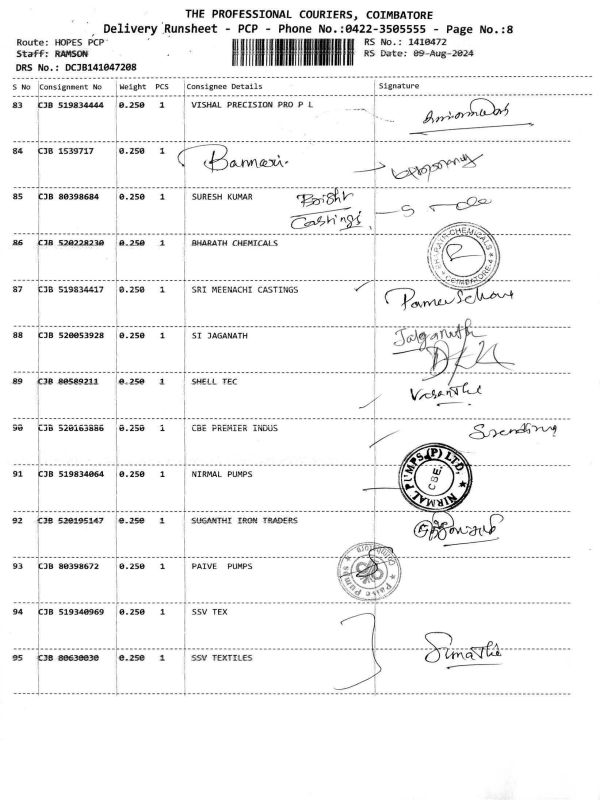 THE PROFESSIONAL COURIERS, COIMBATORE
Delivery Runsheet - PCP - Phone No.:0422-3505555 - Page No.:8
Route: HOPES PCP RS No.: 1410472
Staff: RAMSON RS Date: 09-Aug-2024
DRS No.: DCJB141047208
S No Consignment No Weight PCS Consignee Details Signature
83 CJB 519834444 0.250 1 VISHAL PRECISION PRO P L
84 CJB 1539717 0.250 1 Bannari.
85 CJB 80398684 0.250 1 SURESH KUMAR Bright
Castings.
86 CJB 520228230 0.250 1 BHARATH CHEMICALS
87 CJB 519834417 0.250 1 SRI MEENACHI CASTINGS
88 CJB 520053928 0.250 1 SI JAGANATH Jaganath
89 CJB 80589211 0.250 1 SHELL TEC Vasanthi
90 CJB 520163886 0.250 1 CBE PREMIER INDUS
91 CJB 519834064 0.250 1 NIRMAL PUMPS NIRMAL PUMPS (P) LTD, CBE.
92 CJB 520195147 0.250 1 SUGANTHI IRON TRADERS
93 CJB 80398672 0.250 1 PAIVE PUMPS
94 CJB 519340969 0.250 1 SSV TEX
95 CJB 80630030 0.250 1 SSV TEXTILES Sumathi